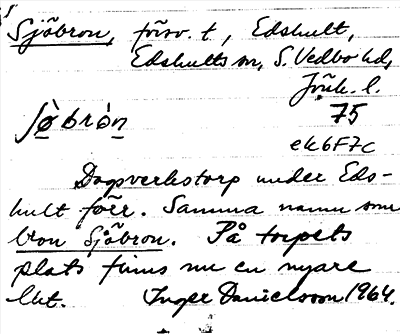 Sjöbron, försv. t., Edshult,
Edshults sn, S. Vedbo hd,
Jönk. l.
ʃø̀bròn 75
ek6F7c
Dagsverkstorp under Eds-
hult förr. Samma namn som
bron Sjöbron. På torpets
plats finns nu en nyare
lht. Inger Danielsson 1964.